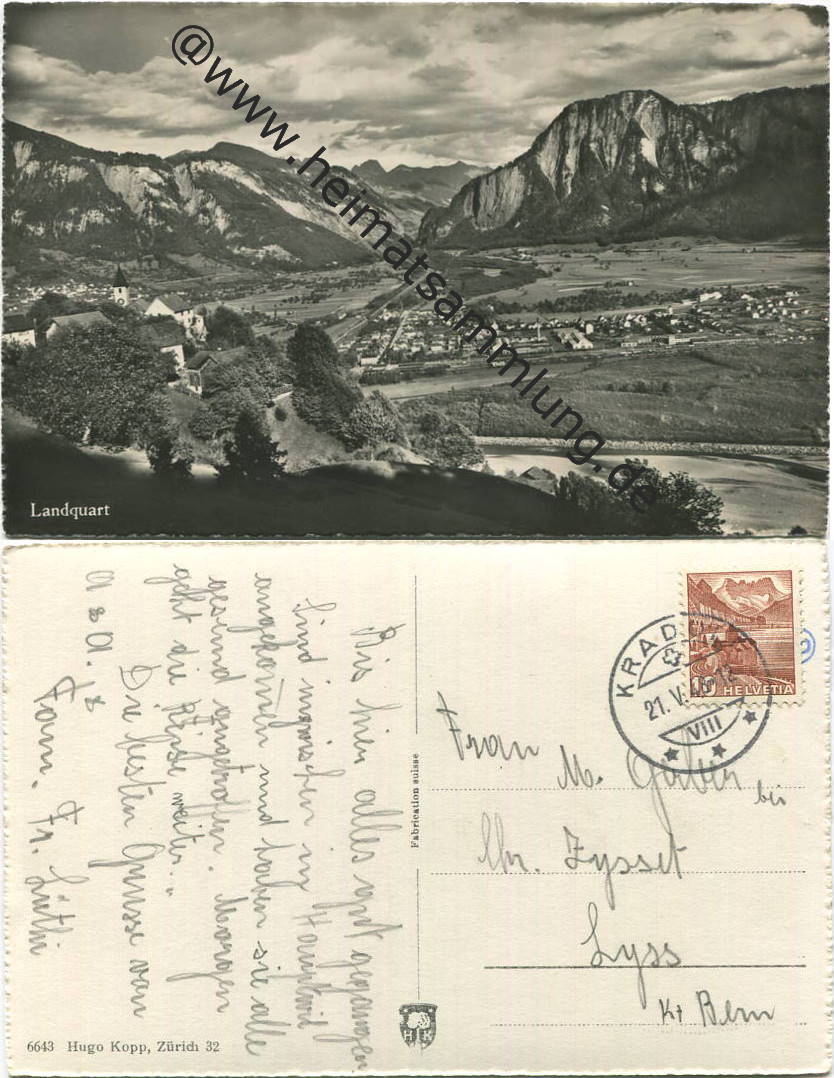 @www.heimatsammlung.de
Landquart
Bis hier alles gut gegangen
sind inzwischen in
angekommen und haben sie alle
gesund angetroffen. Morgen
geht die Reise weiter.
Die besten Grüsse von
Fam. Fr. Lüthi
6643 Hugo Kopp, Zürich 32
Fabrication suisse
KRAD
21. V.
VIII
10 HELVETIA
Frau
M. bei
Chr. Zysset
Lyss
Kt Bern